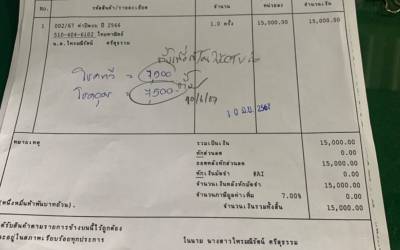 No. รหัสสินค้า/รายละเอียด จำนวน หน่วยละ จำนวนเงิน
1 002/67 ค่าปิดงบ ปี 2566 1.0 ครั้ง 15,000.00 15,000.00
510-404-6102 ไทยพาณิชย์
น.ส.ไพรมณีรัตน์ ศรีสุธรรม
= 7,500
= 7,500
10/6/67
10 มิ.ย. 2567
หมายเหตุ รวมเป็นเงิน 15,000.00
หักส่วนลด 0.00
ยอดหลังหักส่วนลด 15,000.00
หักเงินมัดจำ 0.00
จำนวนเงินหลังหักมัดจำ 15,000.00
จำนวนภาษีมูลค่าเพิ่ม 7.00% 0.00
(หนึ่งหมื่นห้าพันบาทถ้วน) จำนวนเงินรวมทั้งสิ้น 15,000.00
ได้รับสินค้าตามรายการข้างบนนี้ไว้ถูกต้อง
และอยู่ในสภาพเรียบร้อยทุกประการ ในนาม นางสาวไพรมณีรัตน์ ศรีสุธรรม